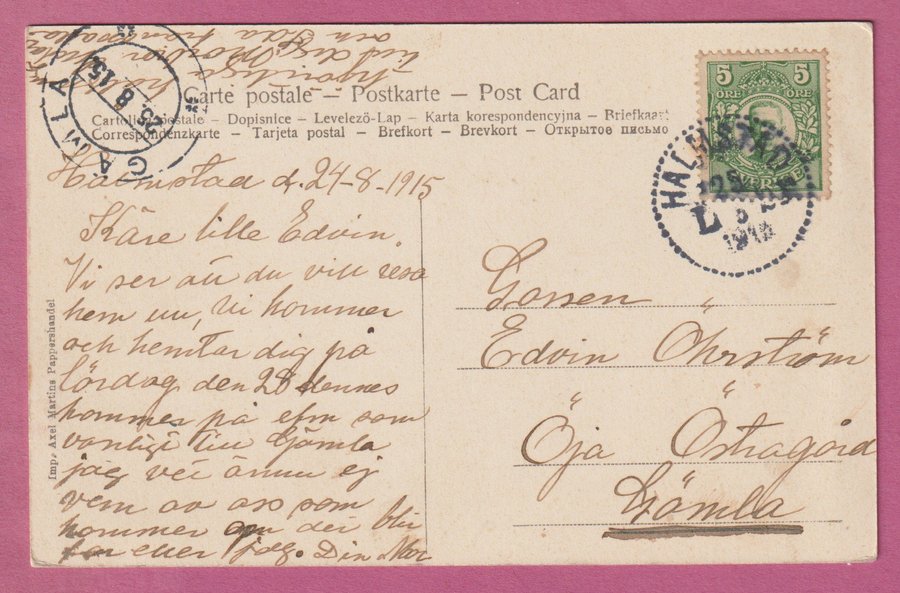 Carte postale — Postkarte — Post Card
Cartolina postale – Dopisnice – Levelező-Lap – Karta korespondencyjna – Briefkaart
Correspondenzkarte – Tarjeta postal – Brefkort – Brevkort – Открытое письмо
GÄMLA
25 8 15
5 5
ÖRE ÖRE
SVERIGE
HALMSTAD
L
Halmstad d. 24-8. 1915
Käre lille Edvin.
Vi ser att du vill resa
hem nu, Vi kommer
och hemtar dig på
lördag den 28 dennes
kommer på efm som
vanligt till Gämla
jag vet ännu ej
vem av oss som
kommer om det blir
far eller jag. Din Mor
Gossen
Edvin Öhrström
Öja Östragård
Gämla
Imp. Axel Martins Pappershandel